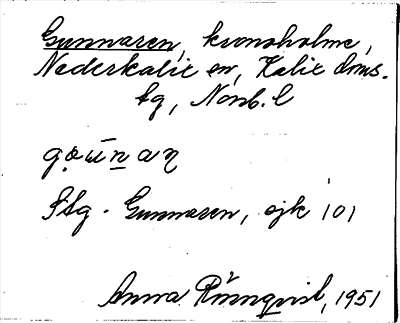 Gunnaren, kronoholme,
Nederkalix sn, Kalix doms.
tg, Norrb. l
gɷ̣ūn̲aɳ
Ftg. Gunnaren, sjk 101
Anna Rönnqvist, 1951